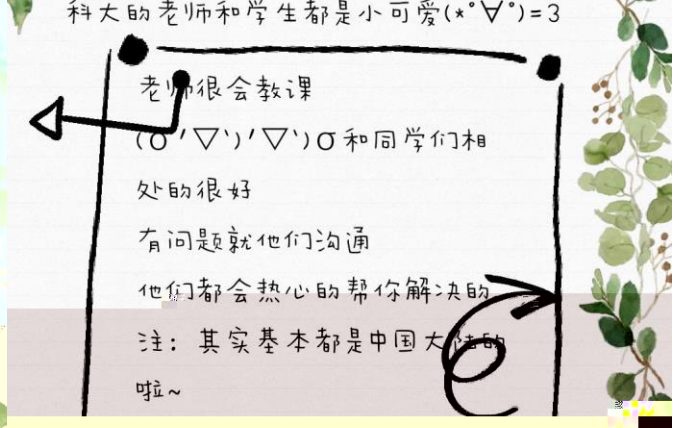 科大的老师和学生都是小可爱(*°∀°)=3
老师很会教课
(σ′▽‵)′▽‵)σ和同学们相
处的很好
有问题就他们沟通
他们都会热心的帮你解决的
注：其实基本都是中国大陆的
啦~